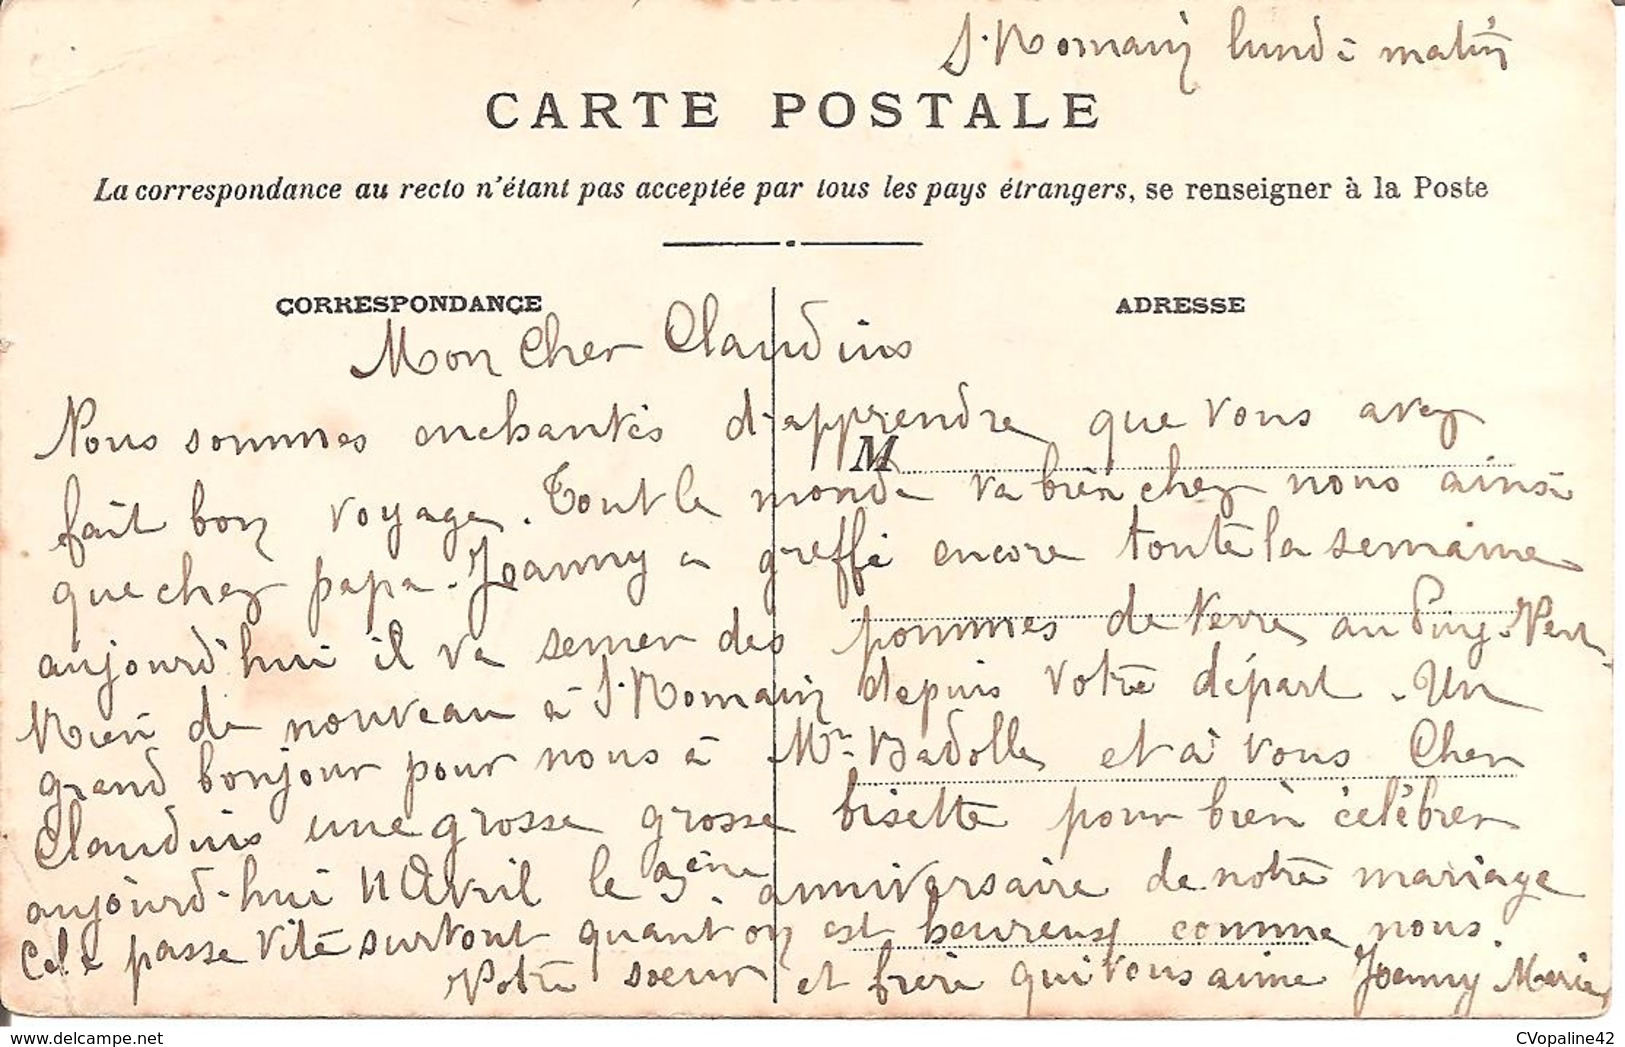 S. Romain lundi matin
CARTE POSTALE
La correspondance au recto n'étant pas acceptée par tous les pays étrangers, se renseigner à la Poste
CORRESPONDANCE
ADRESSE
Mon Cher Claudius
Nous sommes enchantés d'apprendre que vous avez
M
fait bon voyage. Tout le monde va bien chez nous ainsi
que chez papa. Joanny a greffé encore toute la semaine
aujourd'hui il va semer des pommes de terre au Puy-Vert
Rien de nouveau à S. Romain depuis votre départ. Un
grand bonjour pour nous à Mr Badolle et à vous Cher
Claudius une grosse grosse bisette pour bien célébrer
aujourd'hui 11 Avril le 3ème anniversaire de notre mariage
Cela passe vite surtout quant on est heureux comme nous.
Votre soeur et frère qui vous aime Joanny Marie
CVopaline42